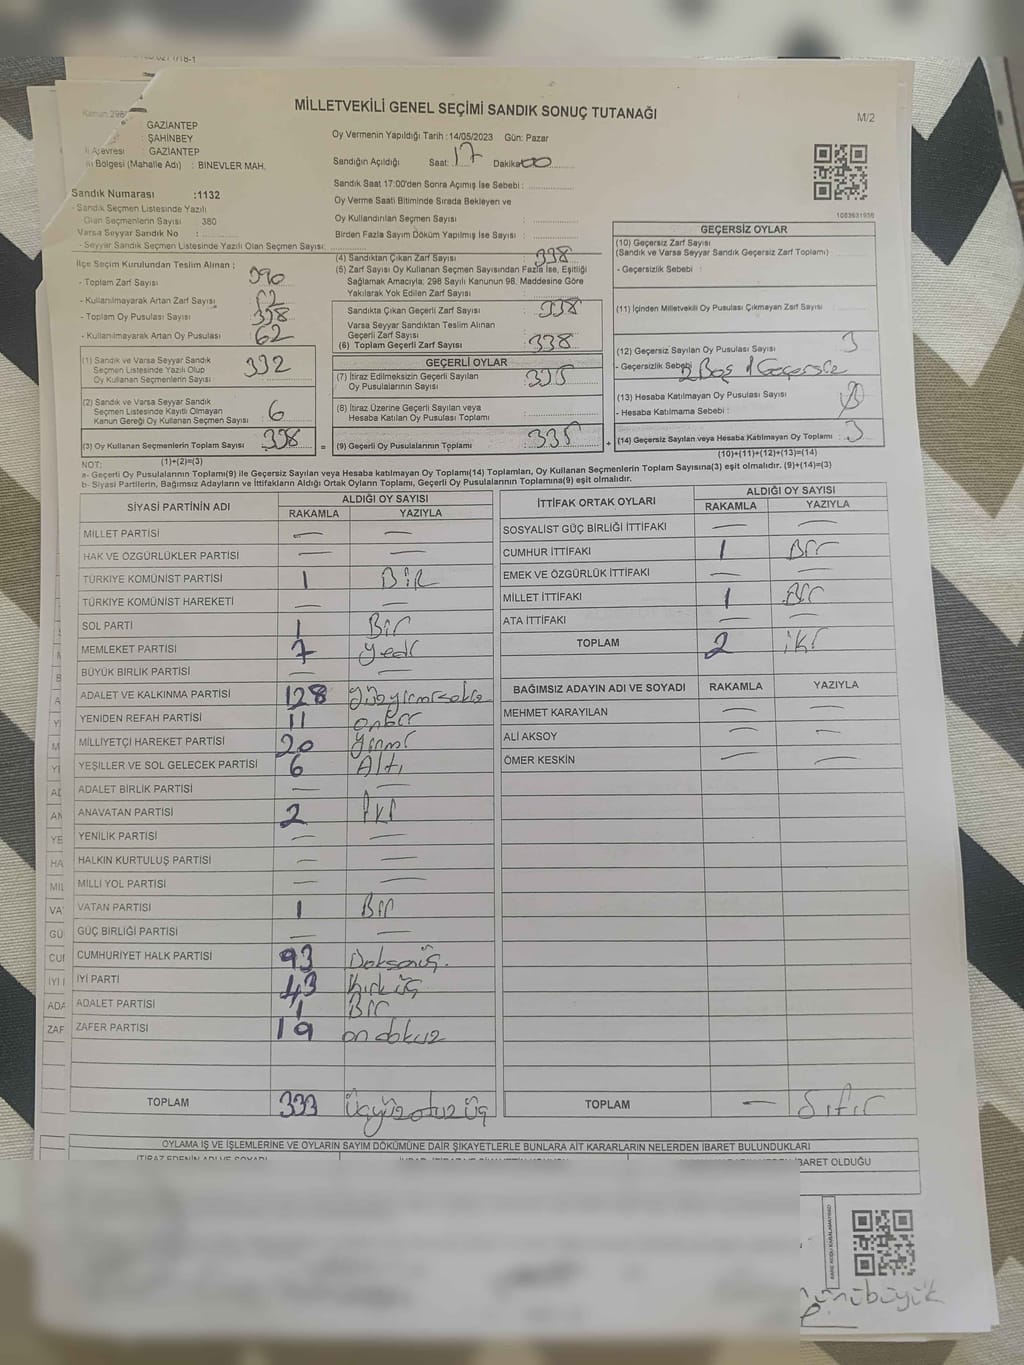 MİLLETVEKİLİ GENEL SEÇİMİ SANDIK SONUÇ TUTANAĞI
M/2
GAZİANTEP
ŞAHİNBEY
GAZİANTEP
Bölgesi (Mahalle Adı) : BİNEVLER MAH.
Sandık Numarası :1132
- Sandık Seçmen Listesinde Yazılı
Olan Seçmenlerin Sayısı 380
Varsa Seyyar Sandık No :
- Seyyar Sandık Seçmen Listesinde Yazılı Olan Seçmen Sayısı:
Oy Vermenin Yapıldığı Tarih :14/05/2023 Gün: Pazar
Sandığın Açıldığı Saat: 17 Dakika: 00
Sandık Saat 17:00'den Sonra Açımış İse Sebebi :
Oy Verme Saati Bitiminde Sırada Bekleyen ve
Oy Kullandırılan Seçmen Sayısı :
Birden Fazla Sayım Döküm Yapılmış İse Sayısı :
1083631956
İlçe Seçim Kurulundan Teslim Alınan :
- Toplam Zarf Sayısı 390
- Kullanılmayarak Artan Zarf Sayısı
- Toplam Oy Pusulası Sayısı
- Kullanılmayarak Artan Oy Pusulası 62
(1) Sandık ve Varsa Seyyar Sandık
Seçmen Listesinde Yazılı Olup
Oy Kullanan Seçmenlerin Sayısı 332
(2) Sandık ve Varsa Seyyar Sandık
Seçmen Listesinde Kayıtlı Olmayan
Kanun Gereği Oy Kullanan Seçmen Sayısı : 6
(3) Oy Kullanan Seçmenlerin Toplam Sayısı 338 =
(4) Sandıktan Çıkan Zarf Sayısı : 338
(5) Zarf Sayısı Oy Kullanan Seçmen Sayısından Fazla İse, Eşitliği
Sağlamak Amacıyla; 298 Sayılı Kanunun 98. Maddesine Göre
Yakılarak Yok Edilen Zarf Sayısı :
Sandıkta Çıkan Geçerli Zarf Sayısı : 338
Varsa Seyyar Sandıktan Teslim Alınan
Geçerli Zarf Sayısı :
(6) Toplam Geçerli Zarf Sayısı : 338
GEÇERLİ OYLAR
(7) İtiraz Edilmeksizin Geçerli Sayılan
Oy Pusulalarının Sayısı : 335
(8) İtiraz Üzerine Geçerli Sayılan veya
Hesaba Katılan Oy Pusulası Toplamı :
(9) Geçerli Oy Pusulalarının Toplamı : 335 +
GEÇERSİZ OYLAR
(10) Geçersiz Zarf Sayısı
(Sandık ve Varsa Seyyar Sandık Geçersiz Zarf Toplamı)
- Geçersizlik Sebebi :
(11) İçinden Milletvekili Oy Pusulası Çıkmayan Zarf Sayısı
(12) Geçersiz Sayılan Oy Pusulası Sayısı 3
- Geçersizlik Sebebi 2 Boş 1 Geçersiz
(13) Hesaba Katılmayan Oy Pusulası Sayısı
- Hesaba Katılmama Sebebi :
(14) Geçersiz Sayılan veya Hesaba Katılmayan Oy Toplamı : 3
NOT: (1)+(2)=(3)
(10)+(11)+(12)+(13)=(14)
a- Geçerli Oy Pusulalarının Toplamı(9) ile Geçersiz Sayılan veya Hesaba Katılmayan Oy Toplamı(14) Toplamları, Oy Kullanan Seçmenlerin Toplam Sayısına(3) eşit olmalıdır. (9)+(14)=(3)
b- Siyasi Partilerin, Bağımsız Adayların ve İttifakların Aldığı Ortak Oyların Toplamı, Geçerli Oy Pusulalarının Toplamına(9) eşit olmalıdır.
SİYASİ PARTİNİN ADI ALDIĞI OY SAYISI
RAKAMLA YAZIYLA
MİLLET PARTİSİ — —
HAK VE ÖZGÜRLÜKLER PARTİSİ — —
TÜRKİYE KOMÜNİST PARTİSİ 1 BİR
TÜRKİYE KOMÜNİST HAREKETİ — —
SOL PARTİ 1 Bir
MEMLEKET PARTİSİ 7 yedi
BÜYÜK BİRLİK PARTİSİ — —
ADALET VE KALKINMA PARTİSİ 128 yüzyirmisekiz
YENİDEN REFAH PARTİSİ 11 onbir
MİLLİYETÇİ HAREKET PARTİSİ 20 yirmi
YEŞİLLER VE SOL GELECEK PARTİSİ 6 Altı
ADALET BİRLİK PARTİSİ — —
ANAVATAN PARTİSİ 2 İki
YENİLİK PARTİSİ — —
HALKIN KURTULUŞ PARTİSİ — —
MİLLİ YOL PARTİSİ — —
VATAN PARTİSİ 1 Bir
GÜÇ BİRLİĞİ PARTİSİ — —
CUMHURİYET HALK PARTİSİ 93 Doksanüç.
İYİ PARTİ 43 Kırküç
ADALET PARTİSİ 1 Bir
ZAFER PARTİSİ 19 on dokuz
TOPLAM 333 üçyüzotuzüç
İTTİFAK ORTAK OYLARI ALDIĞI OY SAYISI
RAKAMLA YAZIYLA
SOSYALİST GÜÇ BİRLİĞİ İTTİFAKI — —
CUMHUR İTTİFAKI 1 Bir
EMEK VE ÖZGÜRLÜK İTTİFAKI — —
MİLLET İTTİFAKI 1 Bir
ATA İTTİFAKI — —
TOPLAM 2 iki
BAĞIMSIZ ADAYIN ADI VE SOYADI RAKAMLA YAZIYLA
MEHMET KARAYILAN — —
ALİ AKSOY — —
ÖMER KESKİN — —
TOPLAM — Sıfır
OYLAMA İŞ VE İŞLEMLERİNE VE OYLARIN SAYIM DÖKÜMÜNE DAİR ŞİKAYETLERLE BUNLARA AİT KARARLARIN NELERDEN İBARET BULUNDUKLARI
İTİRAZ EDENİN ADI VE SOYADI
İBARET OLDUĞU